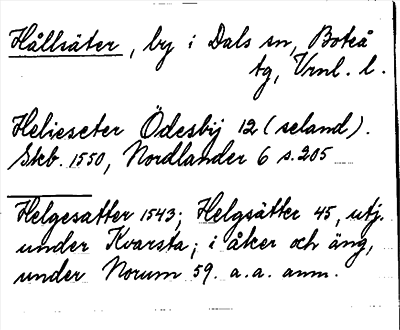 Hållsäter, by i Dals sn, Boteå
tg, Vrnl. l.
Helieseter Ödesbÿ 12 (seland).
Skb. 1550, Nordlander 6 s. 205
Helgesatter 1543; Helgsätter 45, utj.
under Kvarsta; i åker och äng,
under Norum 59. a. a. anm.